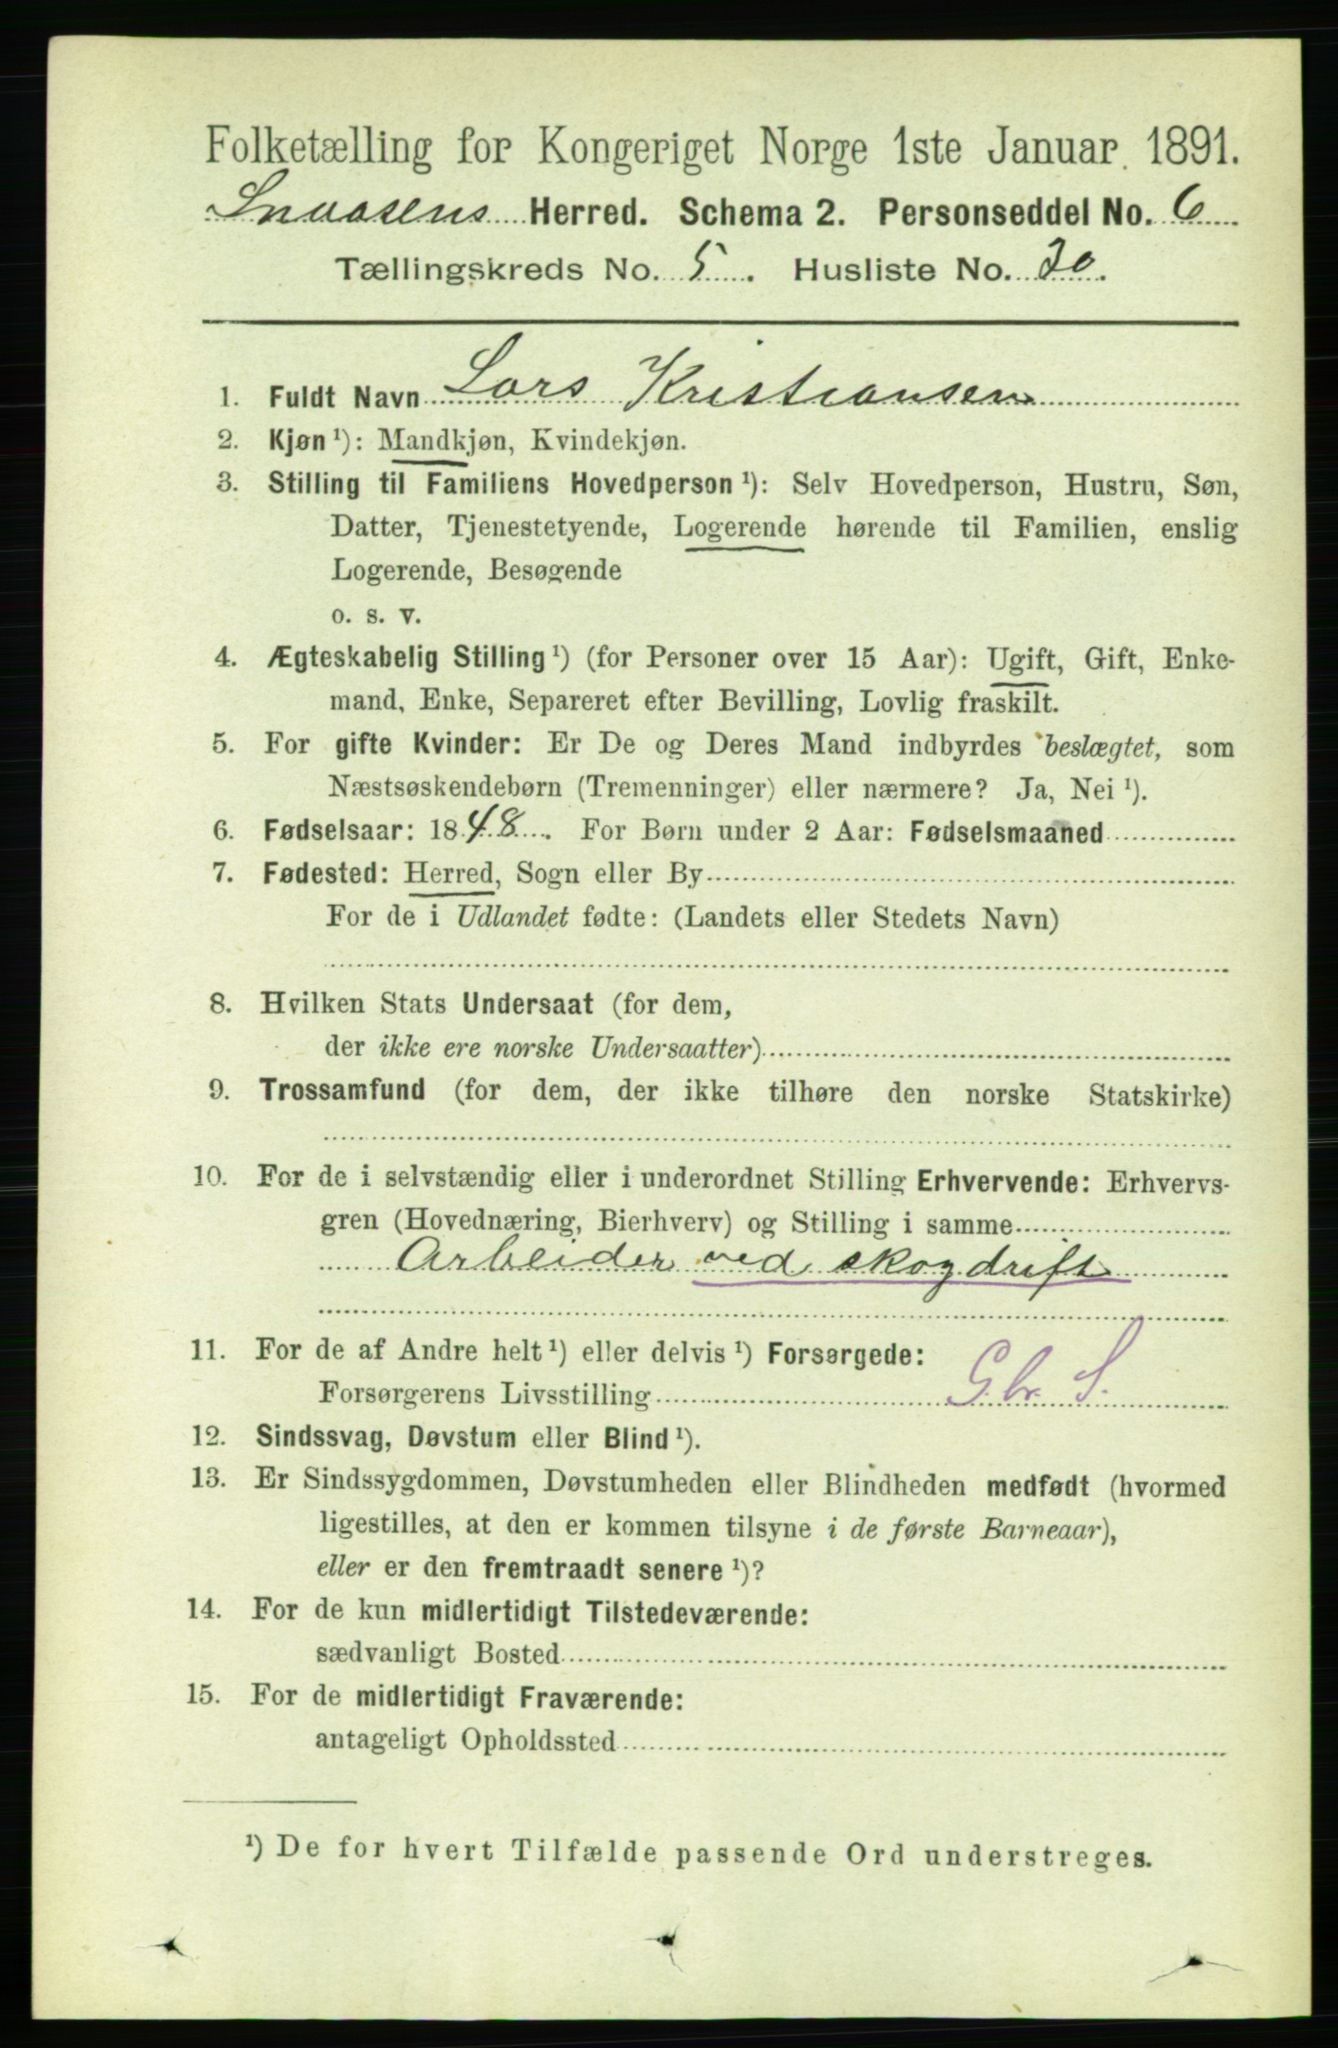 Folketælling for Kongeriget Norge 1ste Januar 1891.
Snaasens Herred. Schema 2. Personseddel No. 6
Tællingskreds No. 5. Husliste No. 20.
1. Fuldt Navn Lars Kristiansen
2. Kjøn ¹): Mandkjøn, Kvindekjøn.
3. Stilling til Familiens Hovedperson ¹): Selv Hovedperson, Hustru, Søn,
Datter, Tjenestetyende, Logerende hørende til Familien, enslig
Logerende, Besøgende
o. s. v.
4. Ægteskabelig Stilling ¹) (for Personer over 15 Aar): Ugift, Gift, Enke-
mand, Enke, Separeret efter Bevilling, Lovlig fraskilt.
5. For gifte Kvinder: Er De og Deres Mand indbyrdes beslægtet, som
Næstsøskendebørn (Tremenninger) eller nærmere? Ja, Nei ¹).
6. Fødselsaar: 1848. For Børn under 2 Aar: Fødselsmaaned
7. Fødested: Herred, Sogn eller By
For de i Udlandet fødte: (Landets eller Stedets Navn)
8. Hvilken Stats Undersaat (for dem,
der ikke ere norske Undersaatter)
9. Trossamfund (for dem, der ikke tilhøre den norske Statskirke)
10. For de i selvstændig eller i underordnet Stilling Erhvervende: Erhvervs-
gren (Hovednæring, Bierhverv) og Stilling i samme
Arbeider ved skogdrift
11. For de af Andre helt ¹) eller delvis ¹) Forsørgede:
Forsørgerens Livsstilling Gbr. S.
12. Sindssvag, Døvstum eller Blind ¹).
13. Er Sindssygdommen, Døvstumheden eller Blindheden medfødt (hvormed
ligestilles, at den er kommen tilsyne i de første Barneaar),
eller er den fremtraadt senere ¹)?
14. For de kun midlertidigt Tilstedeværende:
sædvanligt Bosted
15. For de midlertidigt Fraværende:
antageligt Opholdssted
¹) De for hvert Tilfælde passende Ord understreges.